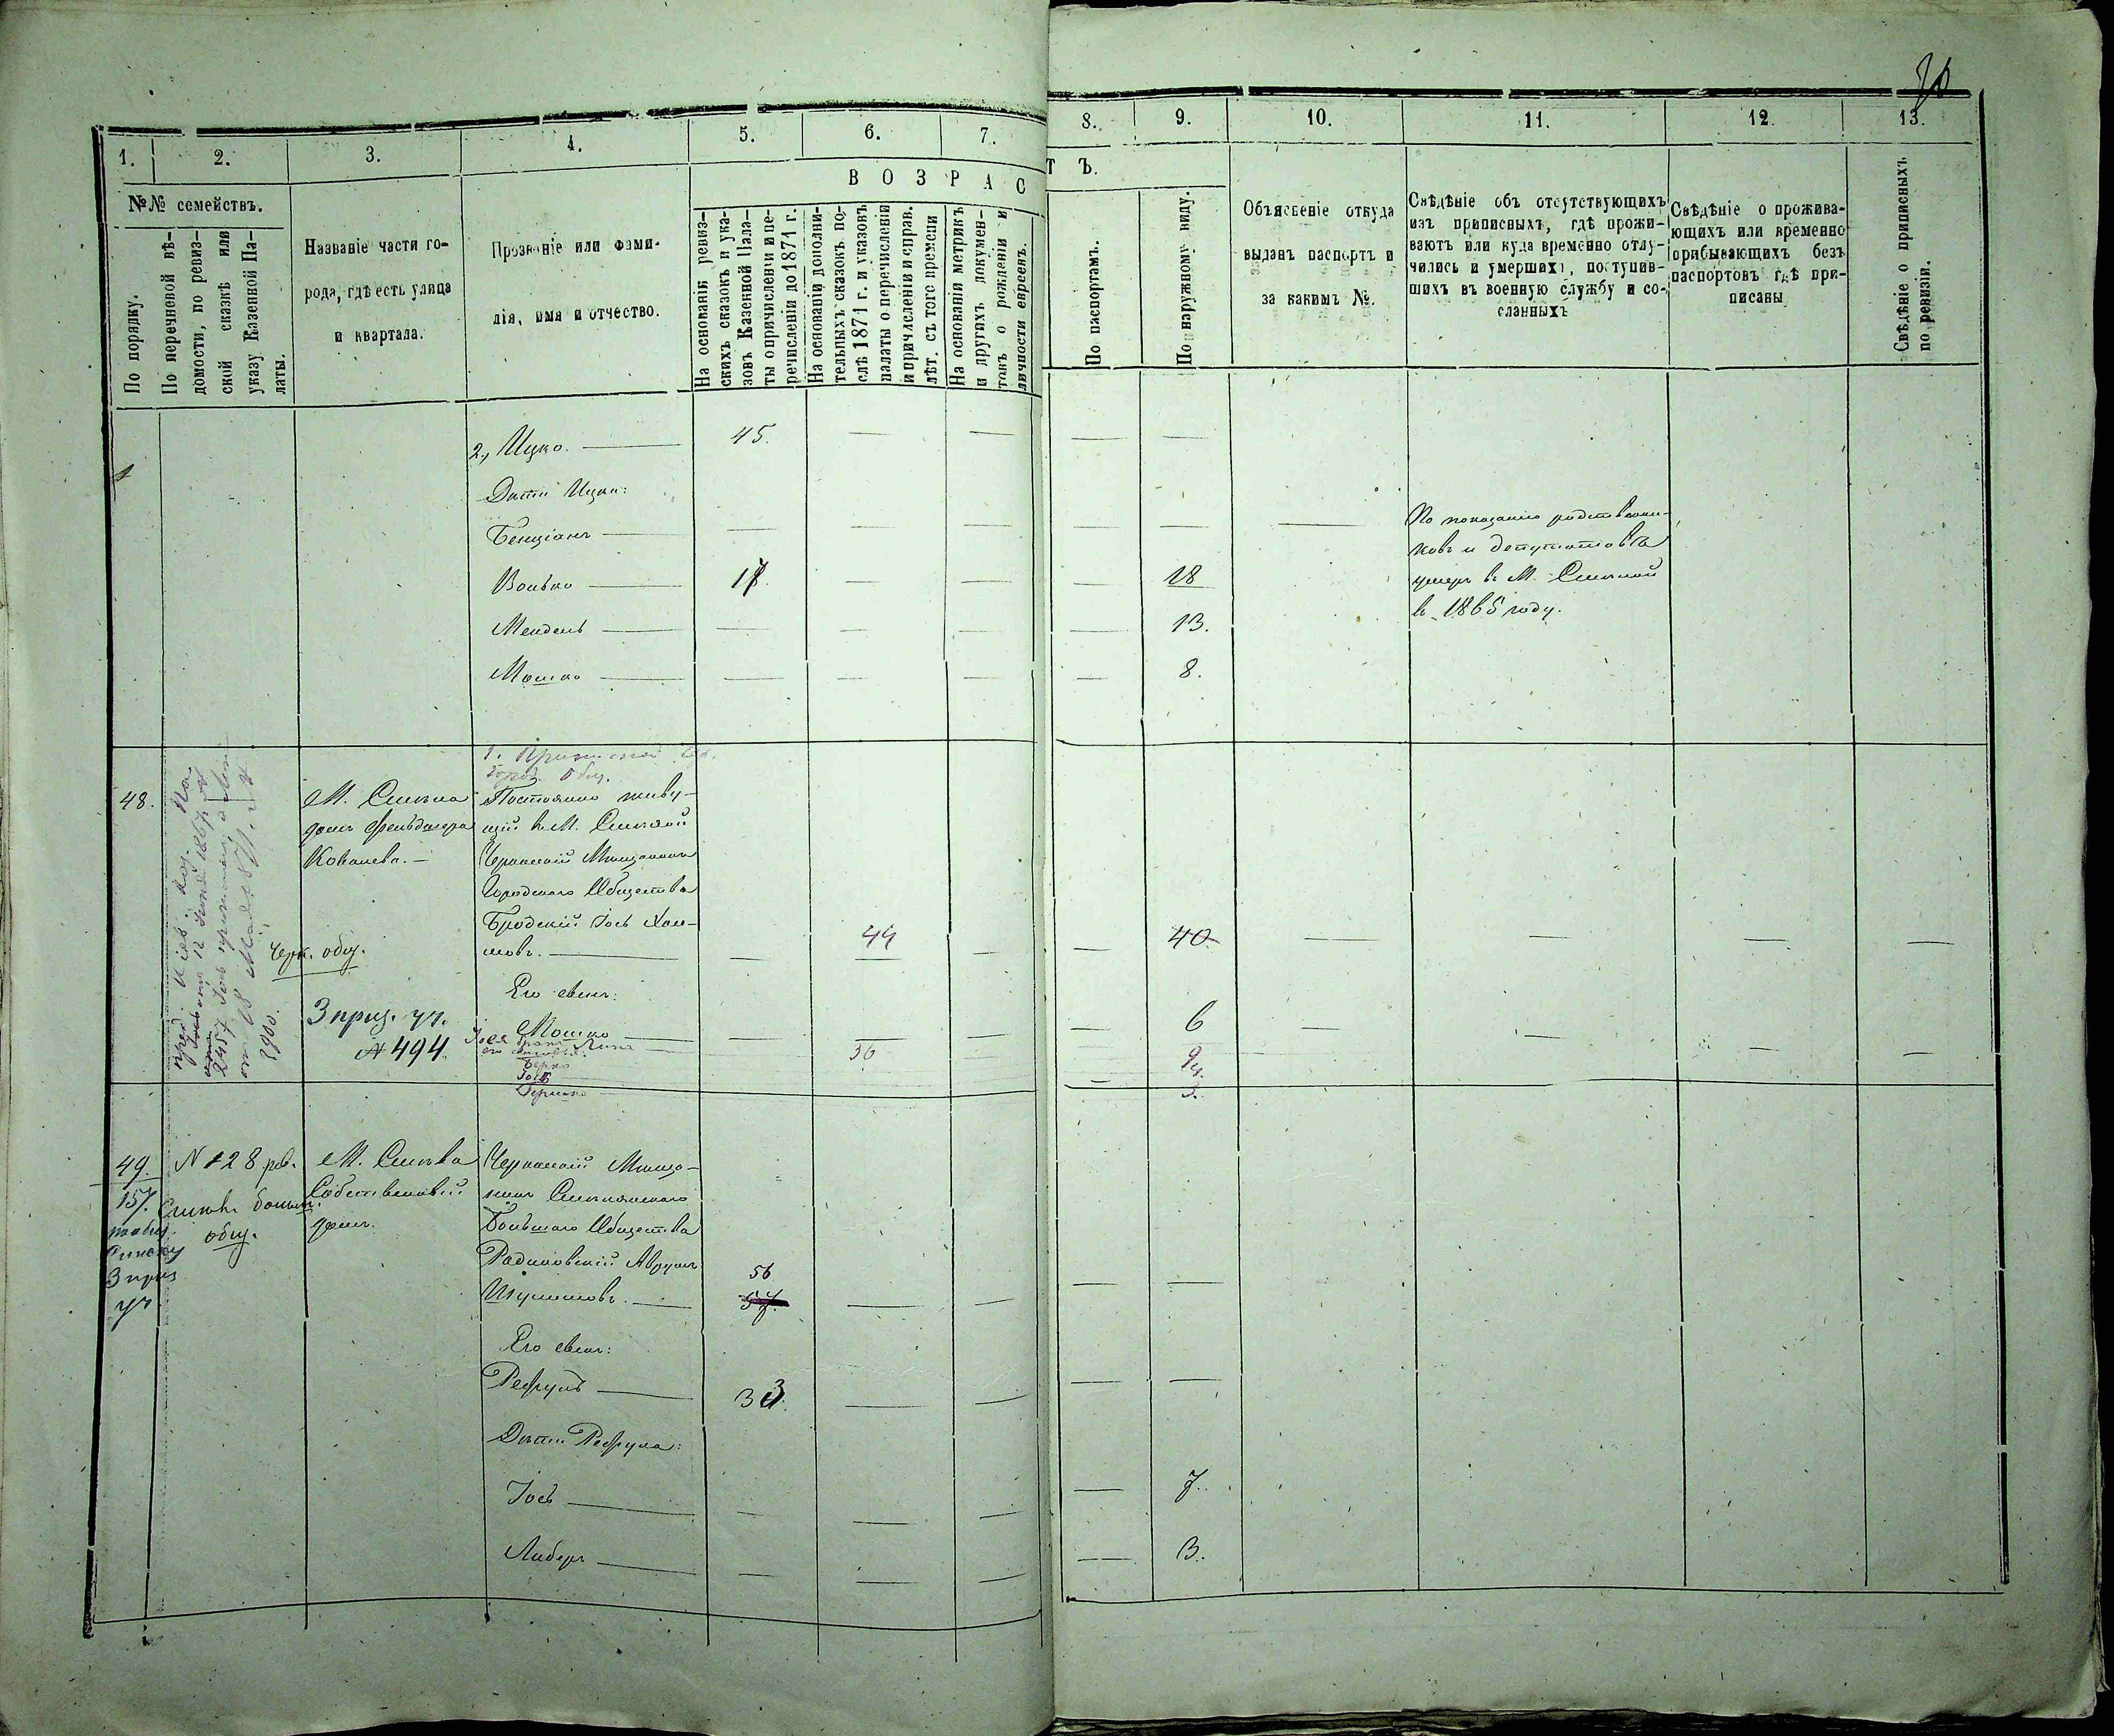 1.
2.
3.
4.
5.
6.
7.
8.
9.
10.
11.
12.
13.
В О З Р А С
Т Ъ.
№№ семействъ.
По порядку.
По перечневой вѣ-
домости, по ревиз-
ской сказкѣ или
указу Казенной Па-
латы.
Названіе части го-
рода, гдѣ есть улица
и квартала.
Прозваніе или фами-
лія, имя и отчество.
На основаніи ревиз-
скихъ сказокъ и ука-
зовъ Казенной Пала-
ты о причисленіи и пе-
речисленіи до 1871 г.
На основаніи дополни-
тельныхъ сказокъ по-
слѣ 1871 г. и указовъ
палаты о перечисленіи
и причисленіи и справ.
лѣт. съ того времени
На основаніи метрикъ
и другихъ докумен-
товъ о рожденіи и
личности евреевъ.
По паспортамъ.
По наружному виду.
Объясненіе откуда
выданъ паспортъ и
за какимъ №.
Свѣдѣніе объ отсутствующихъ
изъ приписныхъ, гдѣ прожи-
ваютъ или куда временно отлу-
чились и умершихъ, поступив-
шихъ въ военную службу и со-
сланныхъ
Свѣдѣніе о прожива-
ющихъ или временно
прибывающихъ безъ
паспортовъ гдѣ при-
писаны
Свѣдѣніе о приписныхъ
по ревизіи.
2, Ицко. 45.
Дѣти Ицка:
Бенціанъ
Волько 17. 18
Мендель 13.
Мошко 8.
По показанію родственни-
ковъ и депутатовъ
умеръ въ М. Смѣлой
въ 1865 году.
48.
М. Смѣла
домъ Фельдшера
Ковалева.
Черк. общ.
3 приз. уч.
№ 494.
Постоянно живу-
щій въ М. Смѣлой
Черкаскій Мѣщанинъ
Городскаго Общества
Бродскій Іось Хаи-
мовъ. 44 40
Его сынъ:
Мошко 6
36
Берко
Іось
49.
157.
3 приз
уч
N 128 рев.
общ.
М. Смѣла
Собственный
домъ.
Черкаскій Мѣща-
нинъ Смѣлянскаго
Большаго Общества
Радиловскій Аврумъ
56
Шулимовъ. 57.
Его сынъ:
Рефулъ 33
Дѣти Рефула:
Іось 7.
Либеръ 3.